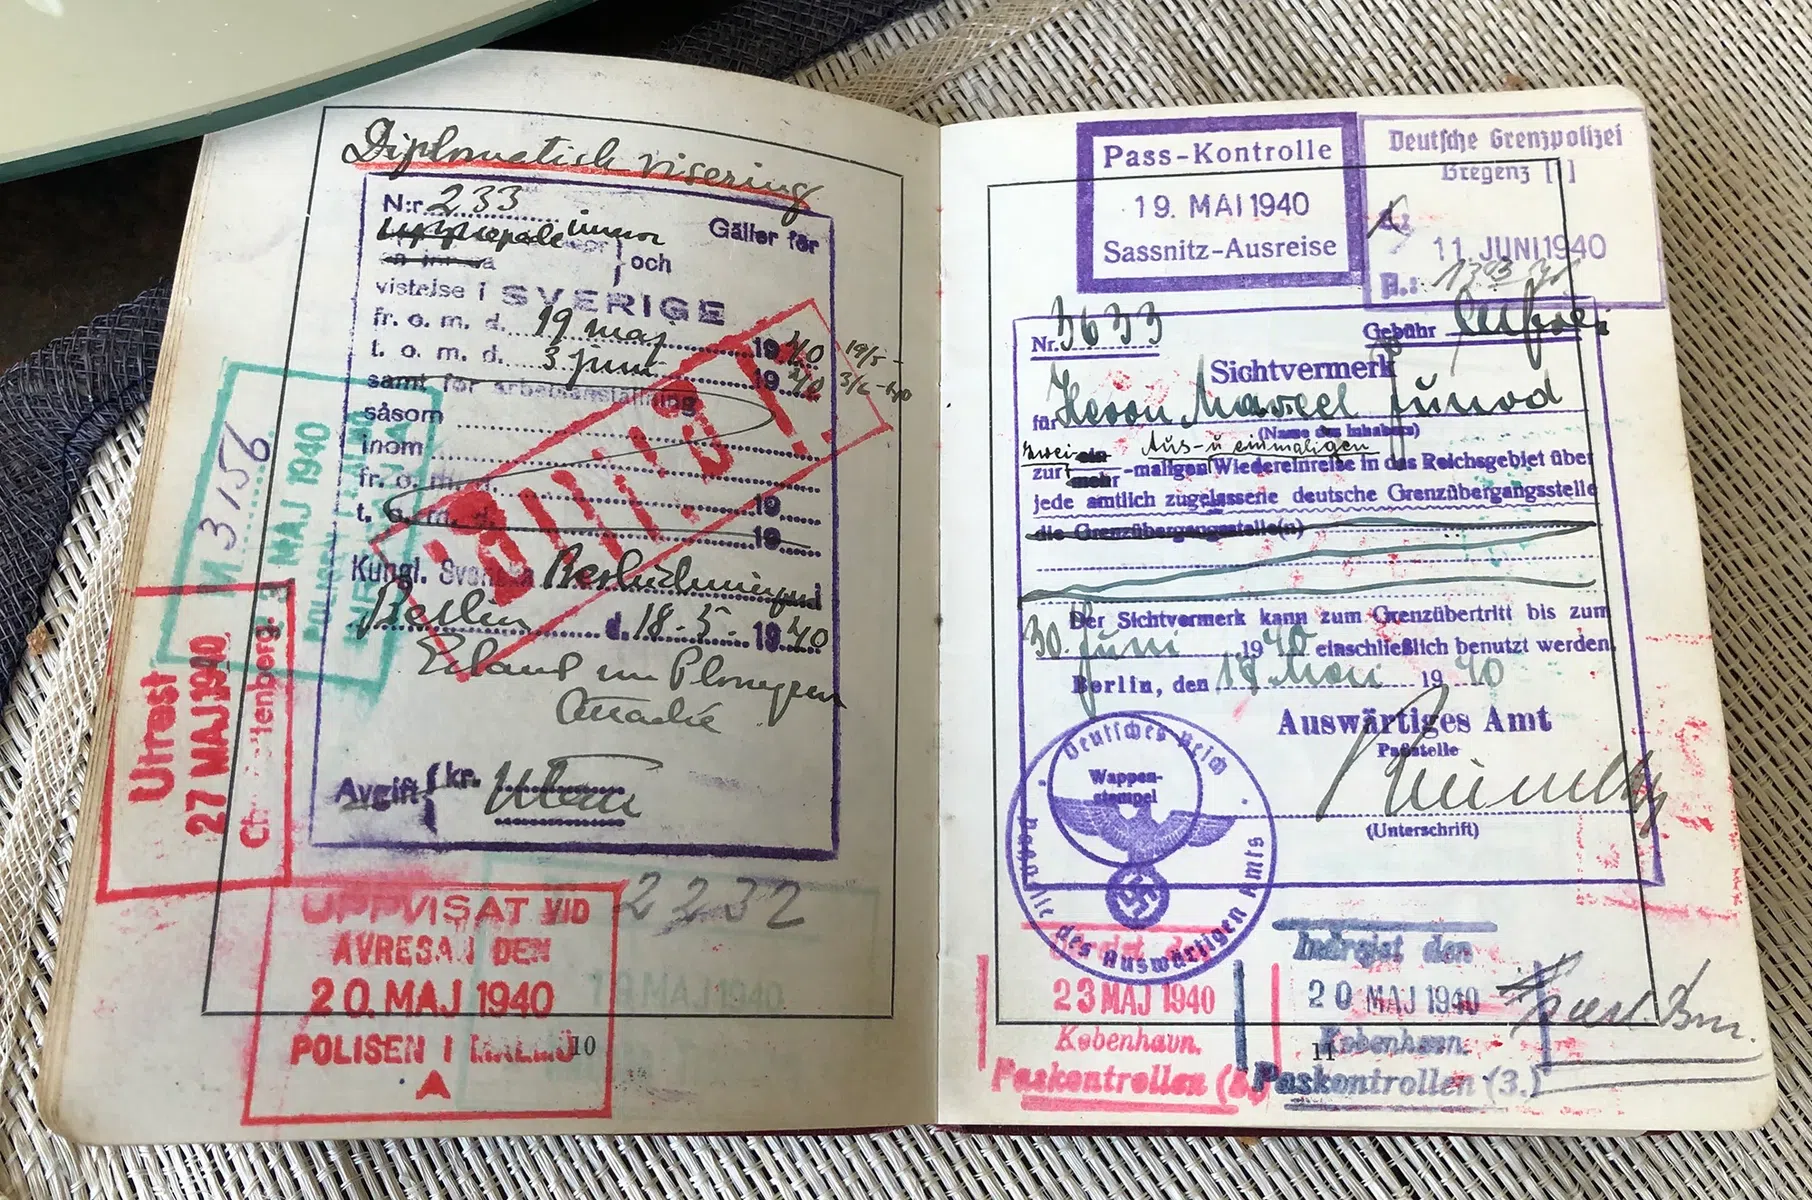 Diplomatisk visering
N:r 233
Gäller för
och
vistelse i SVERIGE
fr. o. m. d. 19 maj 1940
t. o. m. d. 3 juni 1940
19/5 -
3/6 - 40
samt för arbetsanställning
såsom
inom
fr. o. m. d. 19
t. o. m. d. 19
Kungl. Svenska Beskickningen
Berlin d. 18-5- 1940
Attaché
Avgift kr.
M 3156
MAJ 1940
Utrest
27 MAJ 1940
UPPVISAT VID
AVRESAN DEN
20. MAJ 1940
POLISEN I MALMÖ
A
2232
19 MAJ 1940
10
Pass-Kontrolle
19. MAI 1940
Sassnitz-Ausreise
Deutsche Grenzpolizei
Bregenz
11. JUNI 1940
Nr. 3633
Gebühr
Sichtvermerk
für Herrn Marcel Junod
(Name des Inhabers)
zwei ein Aus- u. einmaligen
zur mehr -maligen Wiedereinreise in das Reichsgebiet über
jede amtlich zugelassene deutsche Grenzübergangsstelle
die Grenzübergangsstelle(n)
Der Sichtvermerk kann zum Grenzübertritt bis zum
30. Juni 1940 einschließlich benutzt werden.
Berlin, den 17. Mai 1940
Auswärtiges Amt
Paßstelle
(Unterschrift)
Deutsches Reich
Wappen-
stempel
Paßstelle des Auswärtigen Amts
23 MAJ 1940
København.
Paskontrollen
Indrejst den
20 MAJ 1940
København.
Paskontrollen (3.)
11